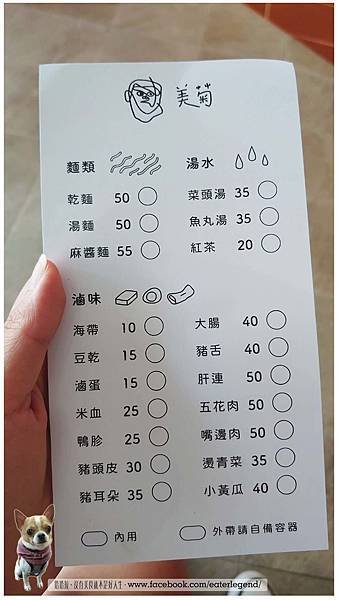 美菊
麵類
乾麵 50
湯麵 50
麻醬麵 55
湯水
菜頭湯 35
魚丸湯 35
紅茶 20
滷味
海帶 10
豆乾 15
滷蛋 15
米血 25
鴨胗 25
豬頭皮 30
豬耳朵 35
大腸 40
豬舌 40
肝連 50
五花肉 50
嘴邊肉 50
燙青菜 35
小黃瓜 40
內用
外帶請自備容器
www.facebook.com/eaterlegend/